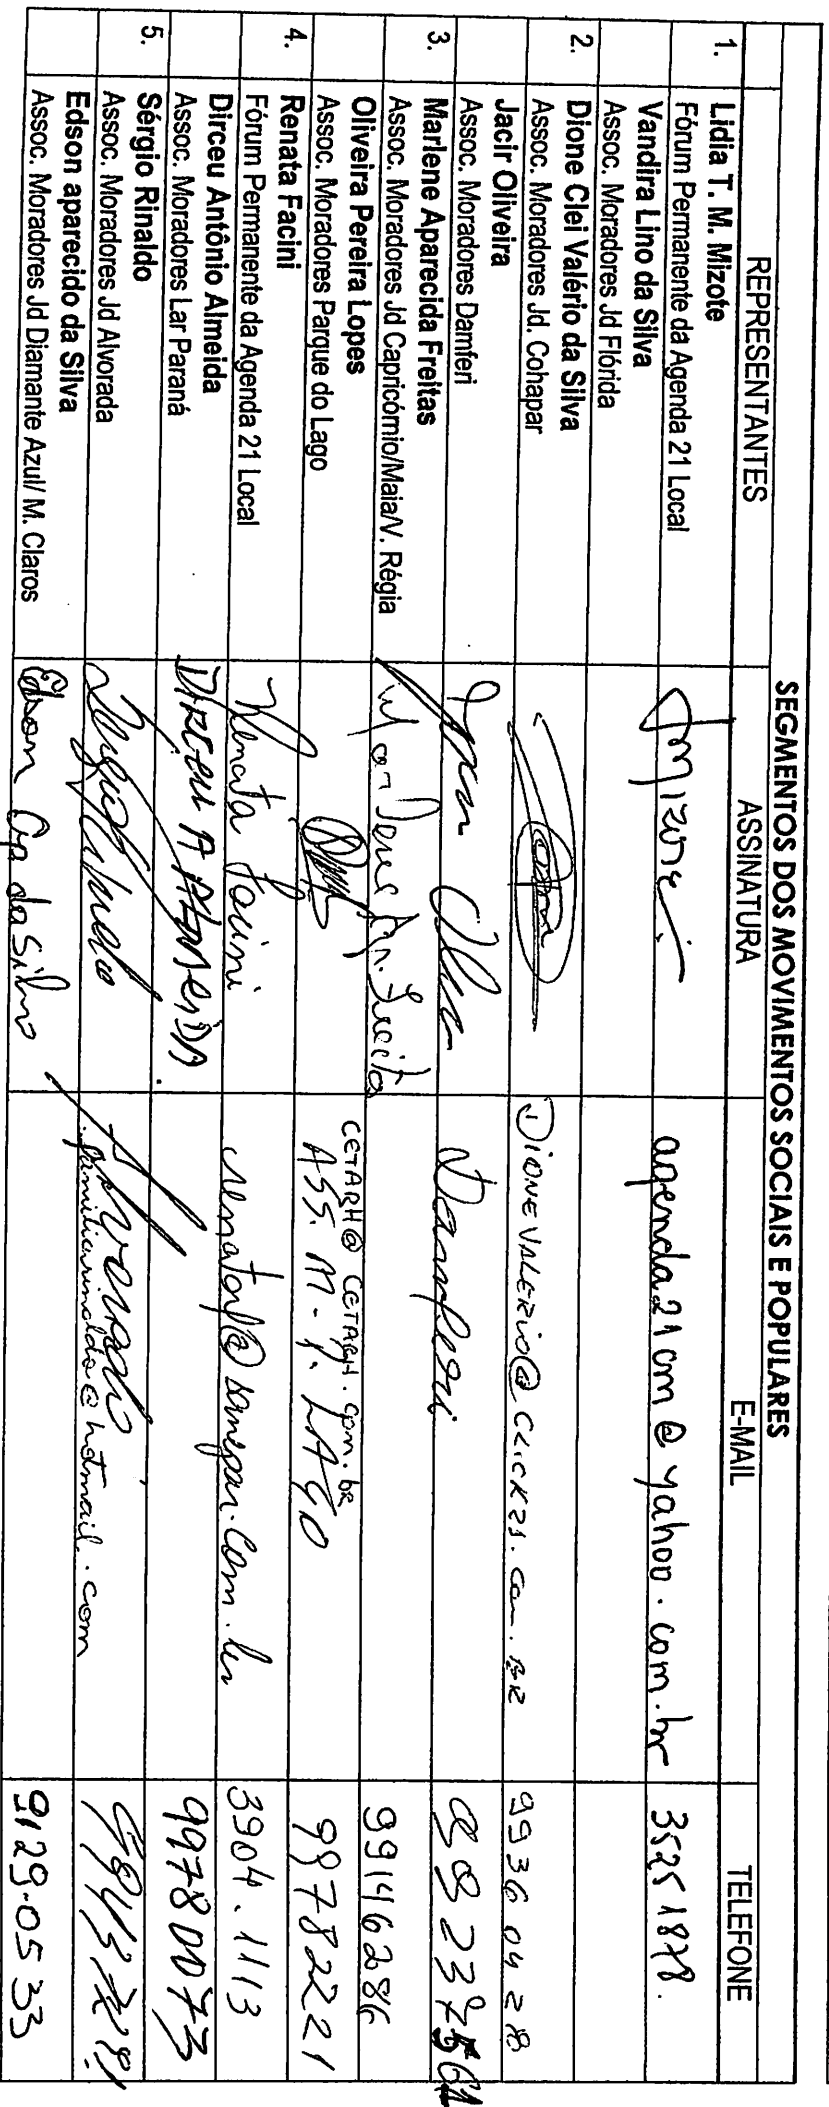 SEGMENTOS DOS MOVIMENTOS SOCIAIS E POPULARES
REPRESENTANTES ASSINATURA E-MAIL TELEFONE
1. Lidia T. M. Mizote
Fórum Permanente da Agenda 21 Local Mizote agenda21cm@yahoo.com.br 35251878.
Vandira Lino da Silva
Assoc. Moradores Jd Flórida
2. Dione Clei Valério da Silva
Assoc. Moradores Jd. Cohapar DIONEVALERIO@CLICK21.COM.BR 99360428
Jacir Oliveira
Assoc. Moradores Damferi Damferi
3. Marlene Aparecida Freitas
Assoc. Moradores Jd Capricórnio/Maia/V. Régia Marlene Ap. Freitas 99146286
Oliveira Pereira Lopes
Assoc. Moradores Parque do Lago CETARH@CETARH.com.br
ASS. M. P. LAGO 99782221
4. Renata Facini
Fórum Permanente da Agenda 21 Local Renata Facini renataf@sanepar.com.br 3904.1113
Dirceu Antônio Almeida
Assoc. Moradores Lar Paraná DIRCEU A ALMEIDA. 99780073
5. Sérgio Rinaldo
Assoc. Moradores Jd Alvorada Alvorada
familiarinaldo@hotmail.com
Edson aparecido da Silva
Assoc. Moradores Jd Diamante Azul/ M. Claros Edson Ap da Silva 9129-0533